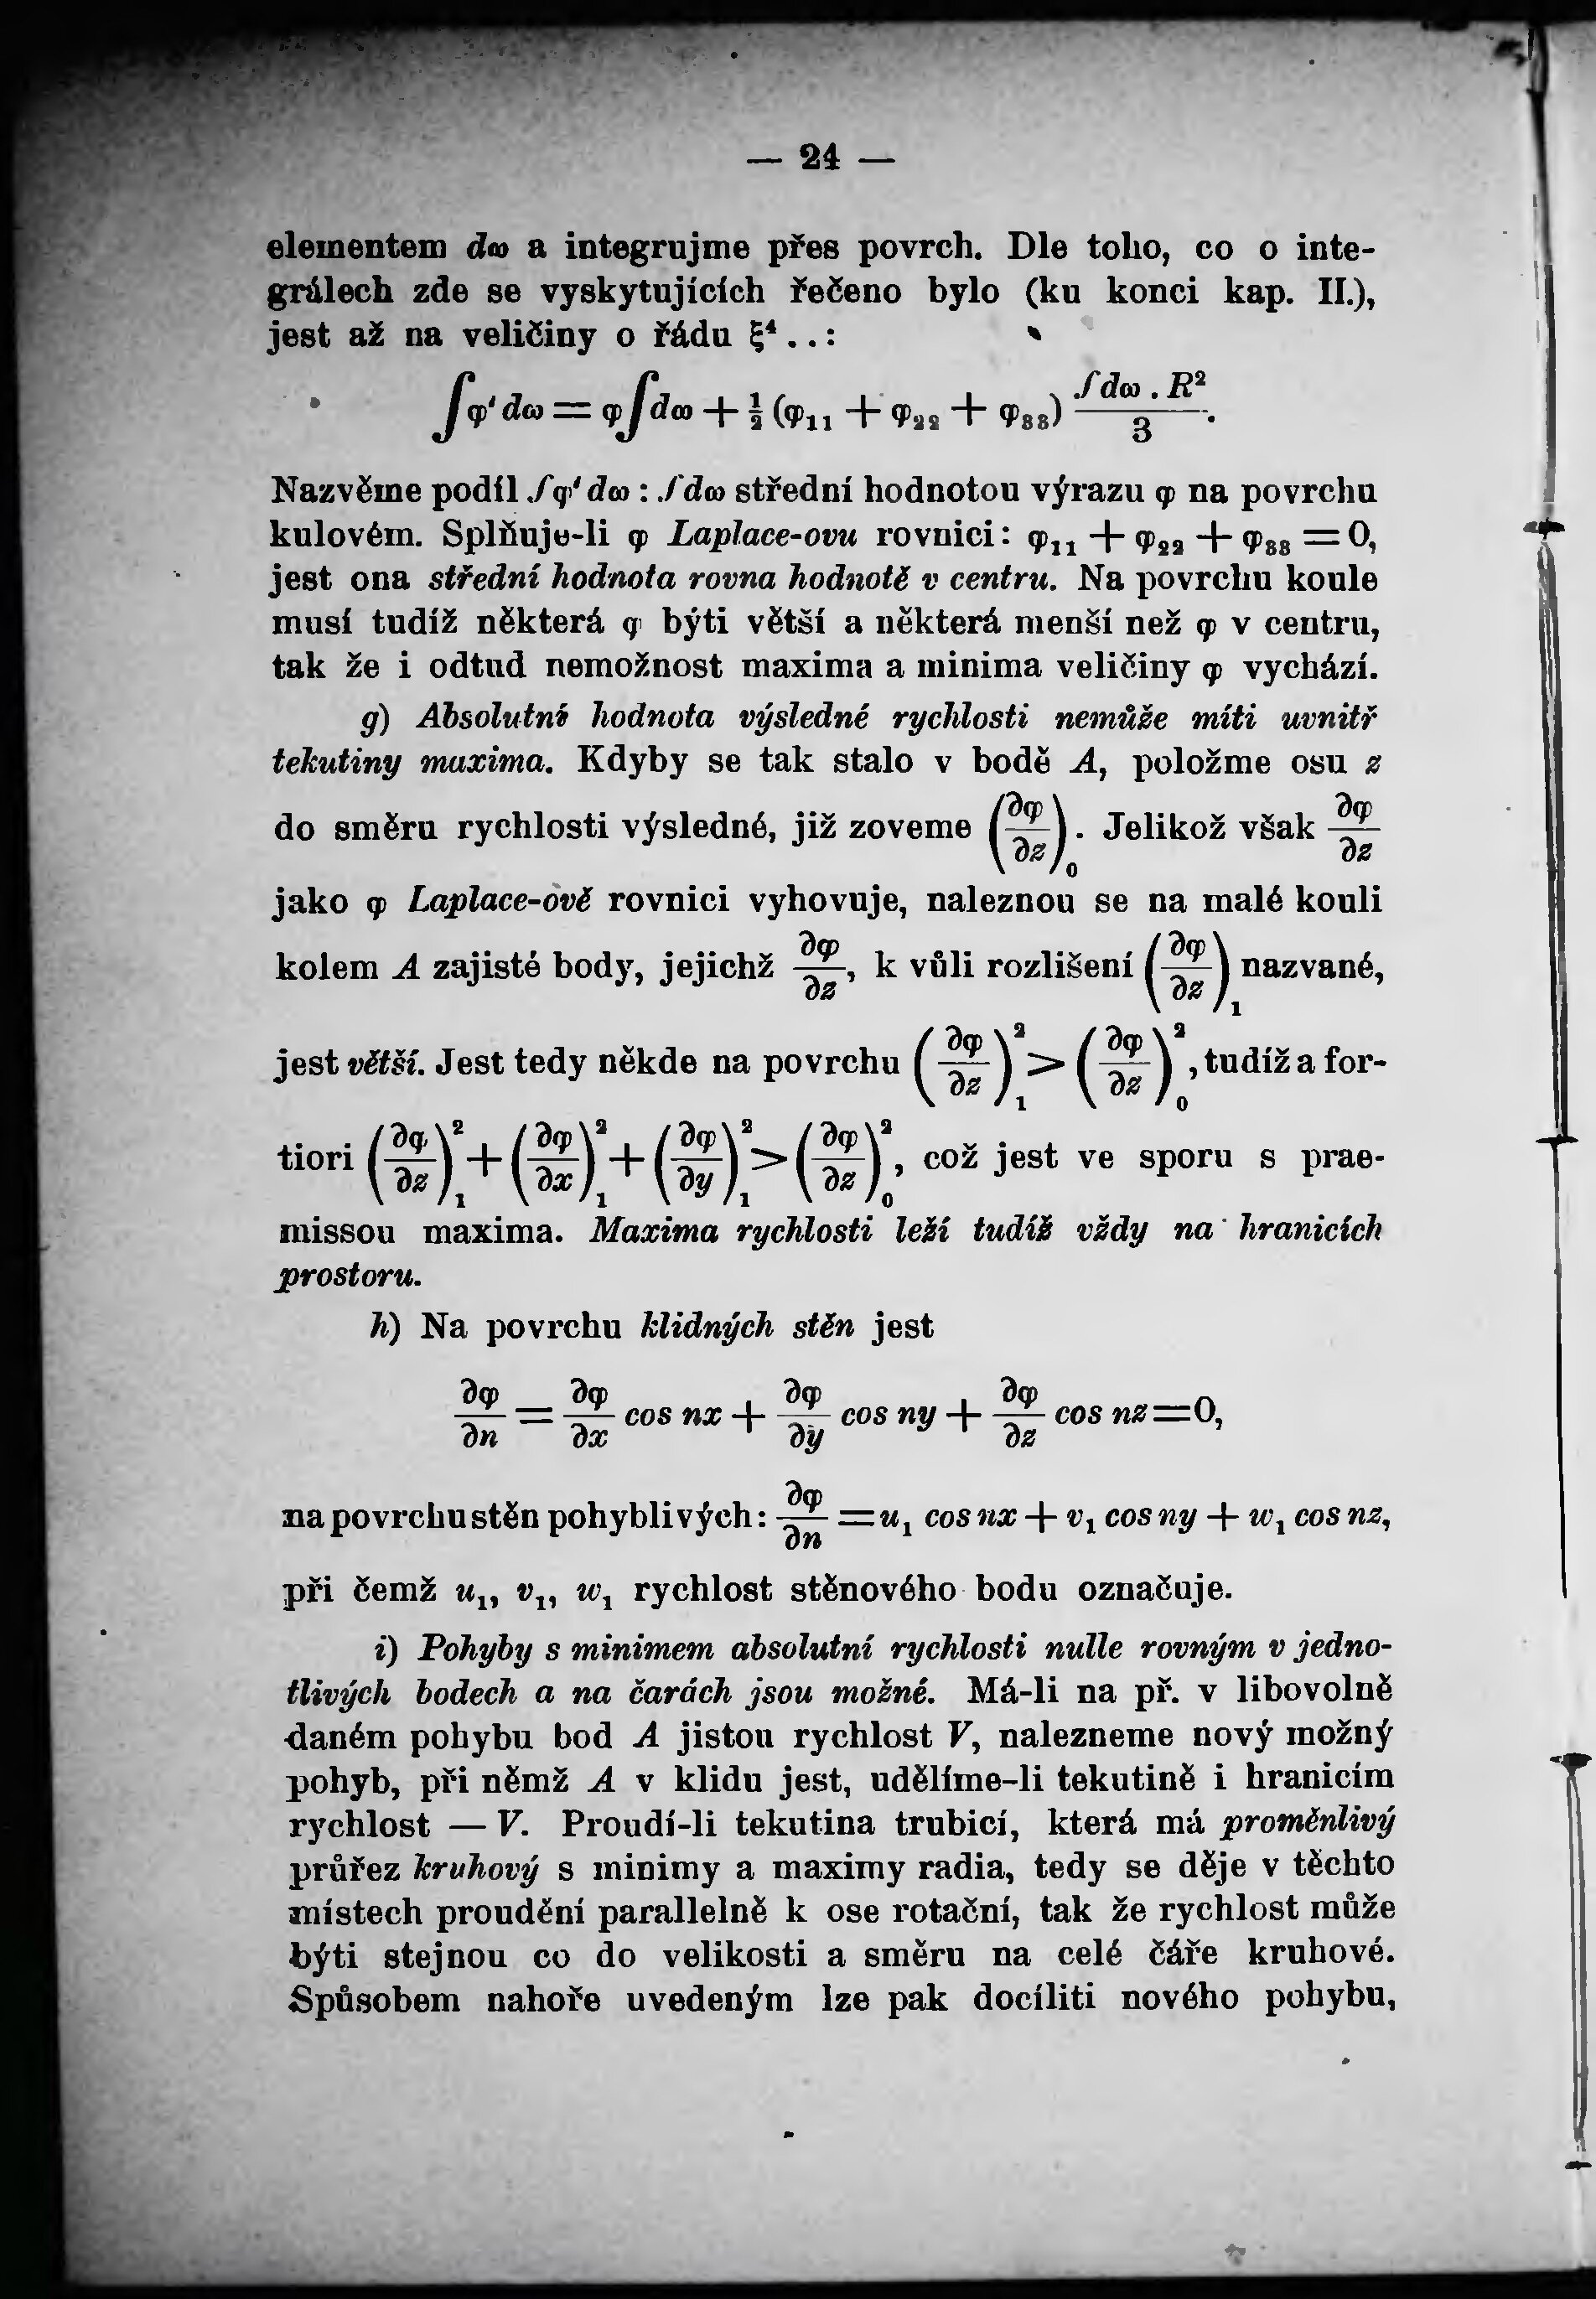 — 24 —
elementem dω a integrujme přes povrch. Dle toho, co o inte-
grálech zde se vyskytujících řečeno bylo (ku konci kap. II.),
jest až na veličiny o řádu ξ⁴ . . :
∫φ' dω = φ∫dω + ½ (φ₁₁ + φ₂₂ + φ₃₃) ∫dω . R² / 3.
Nazvěme podíl ∫φ' dω : ∫dω střední hodnotou výrazu φ na povrchu
kulovém. Splňuje-li φ Laplace-ovu rovnici: φ₁₁ + φ₂₂ + φ₃₃ = 0,
jest ona střední hodnota rovna hodnotě v centru. Na povrchu koule
musí tudíž některá φ býti větší a některá menší než φ v centru,
tak že i odtud nemožnost maxima a minima veličiny φ vychází.
g) Absolutní hodnota výsledné rychlosti nemůže míti uvnitř
tekutiny maxima. Kdyby se tak stalo v bodě A, položme osu z
do směru rychlosti výsledné, již zoveme (∂φ/∂z)₀. Jelikož však ∂φ/∂z
jako φ Laplace-ově rovnici vyhovuje, naleznou se na malé kouli
kolem A zajisté body, jejichž ∂φ/∂z, k vůli rozlišení (∂φ/∂z)₁ nazvané,
jest větší. Jest tedy někde na povrchu (∂φ/∂z)₁² > (∂φ/∂z)₀², tudíž a for-
tiori (∂φ/∂z)₁² + (∂φ/∂x)₁² + (∂φ/∂y)₁² > (∂φ/∂z)₀², což jest ve sporu s prae-
missou maxima. Maxima rychlosti leží tudíž vždy na hranicích
prostoru.
h) Na povrchu klidných stěn jest
∂φ/∂n = ∂φ/∂x cos nx + ∂φ/∂y cos ny + ∂φ/∂z cos nz = 0,
na povrchu stěn pohyblivých: ∂φ/∂n = u₁ cos nx + v₁ cos ny + w₁ cos nz,
při čemž u₁, v₁, w₁ rychlost stěnového bodu označuje.
i) Pohyby s minimem absolutní rychlosti nulle rovným v jedno-
tlivých bodech a na čarách jsou možné. Má-li na př. v libovolně
daném pohybu bod A jistou rychlost V, nalezneme nový možný
pohyb, při němž A v klidu jest, udělíme-li tekutině i hranicím
rychlost — V. Proudí-li tekutina trubicí, která má proměnlivý
průřez kruhový s minimy a maximy radia, tedy se děje v těchto
místech proudění parallelně k ose rotační, tak že rychlost může
býti stejnou co do velikosti a směru na celé čáře kruhové.
Spůsobem nahoře uvedeným lze pak docíliti nového pohybu,